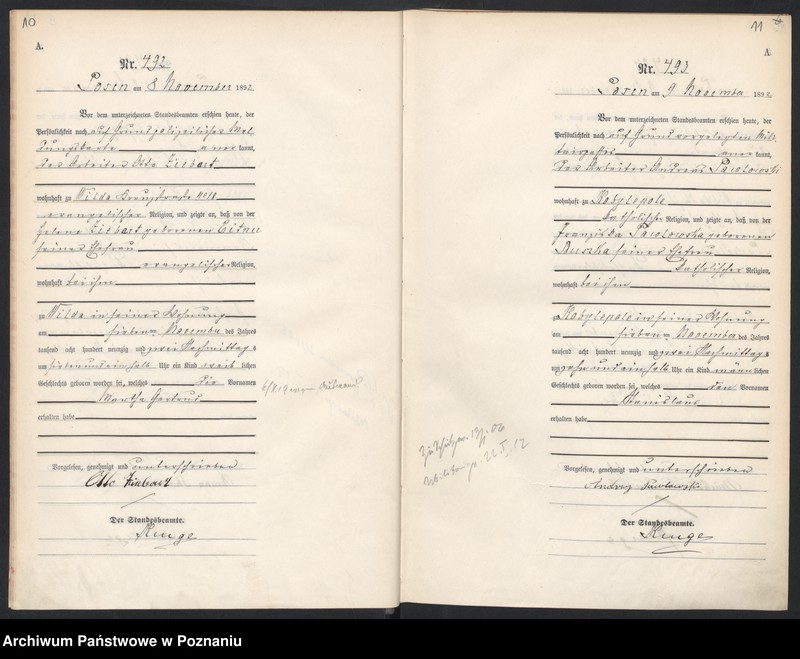 10
A.
Nr. 492
Posen am 8 November 1892.
Vor dem unterzeichneten Standesbeamten erschien heute, der
Persönlichkeit nach auf Grund polizeilicher Mel
dungskarte anerkannt,
der Arbeiter Otto Ziebart
wohnhaft zu Wilda Kreuzstraße
evangelischer Religion, und zeigte an, daß von der
Helene Ziebart geborenen Eitner
seiner Ehefrau
evangelischer Religion,
wohnhaft bei ihm
zu Wilda in seiner Wohnung
am sieben ten November des Jahres
tausend acht hundert neunzig und zwei Nachmittags
um sieben und ein halb Uhr ein Kind weib lichen
Geschlechts geboren worden sei, welches die Vornamen
Martha Gertrud
erhalten habe
Vorgelesen, genehmigt und unterschrieben
Otto Ziebart
Der Standesbeamte.
Runge
11
A.
Nr. 493
Posen am 9 November 1892.
Vor dem unterzeichneten Standesbeamten erschien heute, der
Persönlichkeit nach auf Grund vorgelegten Mili
tairpasses anerkannt,
der Arbeiter Andreas Pawlowski
wohnhaft zu Kobylepole
katholischer Religion, und zeigte an, daß von der
Franziska Pawlowska geborenen
Duszka seiner Ehefrau
katholischer Religion,
wohnhaft bei ihm
Kobylepole in seiner Wohnung
am sieben ten November des Jahres
tausend acht hundert neunzig und zwei Nachmittags
um zehn und ein halb Uhr ein Kind männ lichen
Geschlechts geboren worden sei, welches den Vornamen
Stanislaus
erhalten habe
Vorgelesen, genehmigt und unterschrieben
Andrzej Pawlowski
Der Standesbeamte.
Runge
Archiwum Państwowe w Poznaniu